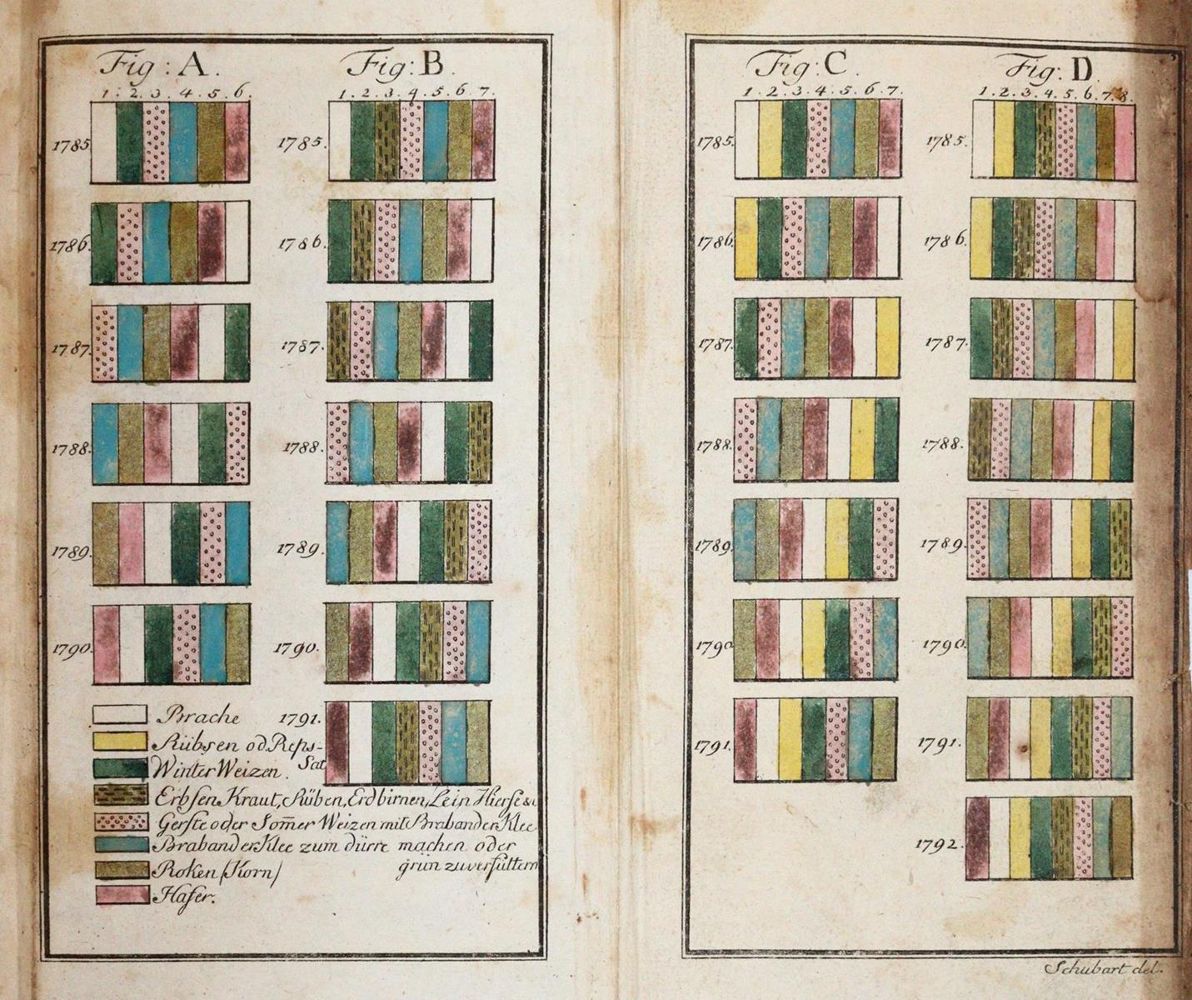 Fig: A.
1. 2. 3. 4. 5. 6.
1785
1786.
1787.
1788.
1789.
1790.
Fig: B.
1. 2. 3. 4. 5. 6. 7.
1785.
1786.
1787.
1788.
1789.
1790.
1791.
Brache
Rübsen od Reps-
Sat
Winter Weizen.
Erbsen Kraut, Rüben, Erdbirnen, Lein Hierse &c
Gerste oder Som̅er Weizen mit Brabander Klee
Brabander Klee zum dürre machen oder
grün zu verfüttern
Roken (Korn)
Hafer.
Fig: C.
1. 2. 3. 4. 5. 6. 7.
1785.
1786
1787.
1788.
1789.
1790
1791.
Fig. D.
1. 2. 3. 4. 5. 6. 7. 8.
1785.
1786.
1787.
1788.
1789.
1790.
1791.
1792.
Schubart del.